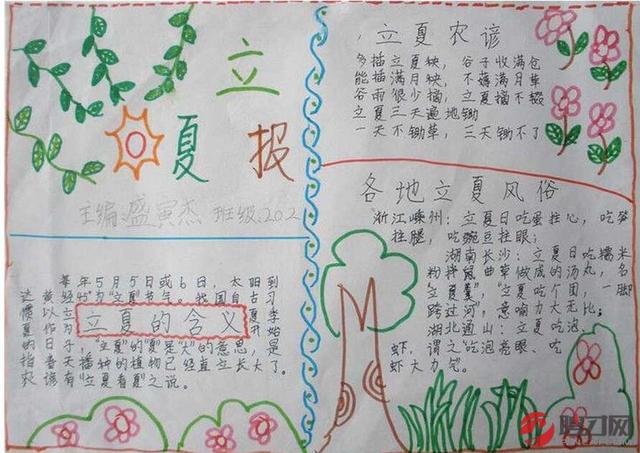 立
夏 报
主编 盛寅杰 班级:202
每年5月5日或6日，太阳到
达黄经45°为"立夏"节气。我国自古习
惯以立
夏作为 开始
立夏的含义
的日子，"立夏"的"夏"是"大"的意思，是
指春天播种的植物已经直立长大了。
农谚有"立夏看夏"之说。
立夏农谚
多插立夏秧，谷子收满仓
能插满月秧，不薅满月草
谷雨很少插，立夏插不辍
立夏三天遍地锄
一天不锄草，三天锄不了
各地立夏风俗
浙江嵊州：立夏日吃蛋拄心，吃笋
拄腿，吃豌豆拄眼；
湖南长沙：立夏日吃糯米
粉拌鼠曲草做成的汤丸，名
"立夏羹"，"立夏吃个团，一脚
跨过河"，意喻力大无比；
湖北通山：立夏吃泡、
虾，谓之"吃泡亮眼、吃
虾大力气。
腾刃网